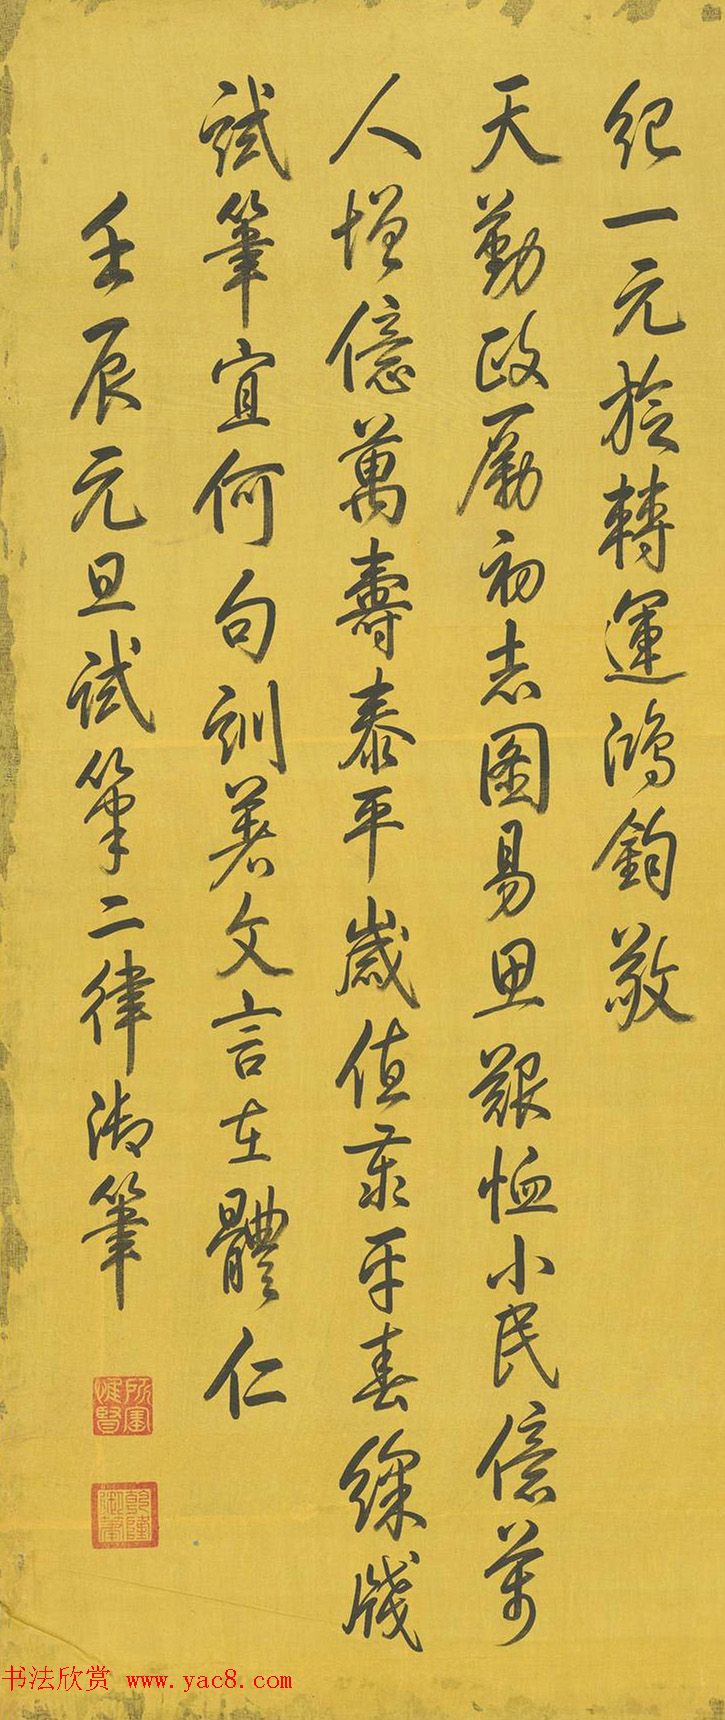 紀一元旋轉運鴻鈞敬
天勤政勵初志圖易思艱恤小民億萬
人增億萬壽泰平歲值平春綵牋
試筆宜何句訓著文言在體仁
壬辰元旦試筆二律御筆
所寶惟賢
乾隆御筆
书法欣赏 www.yac8.com